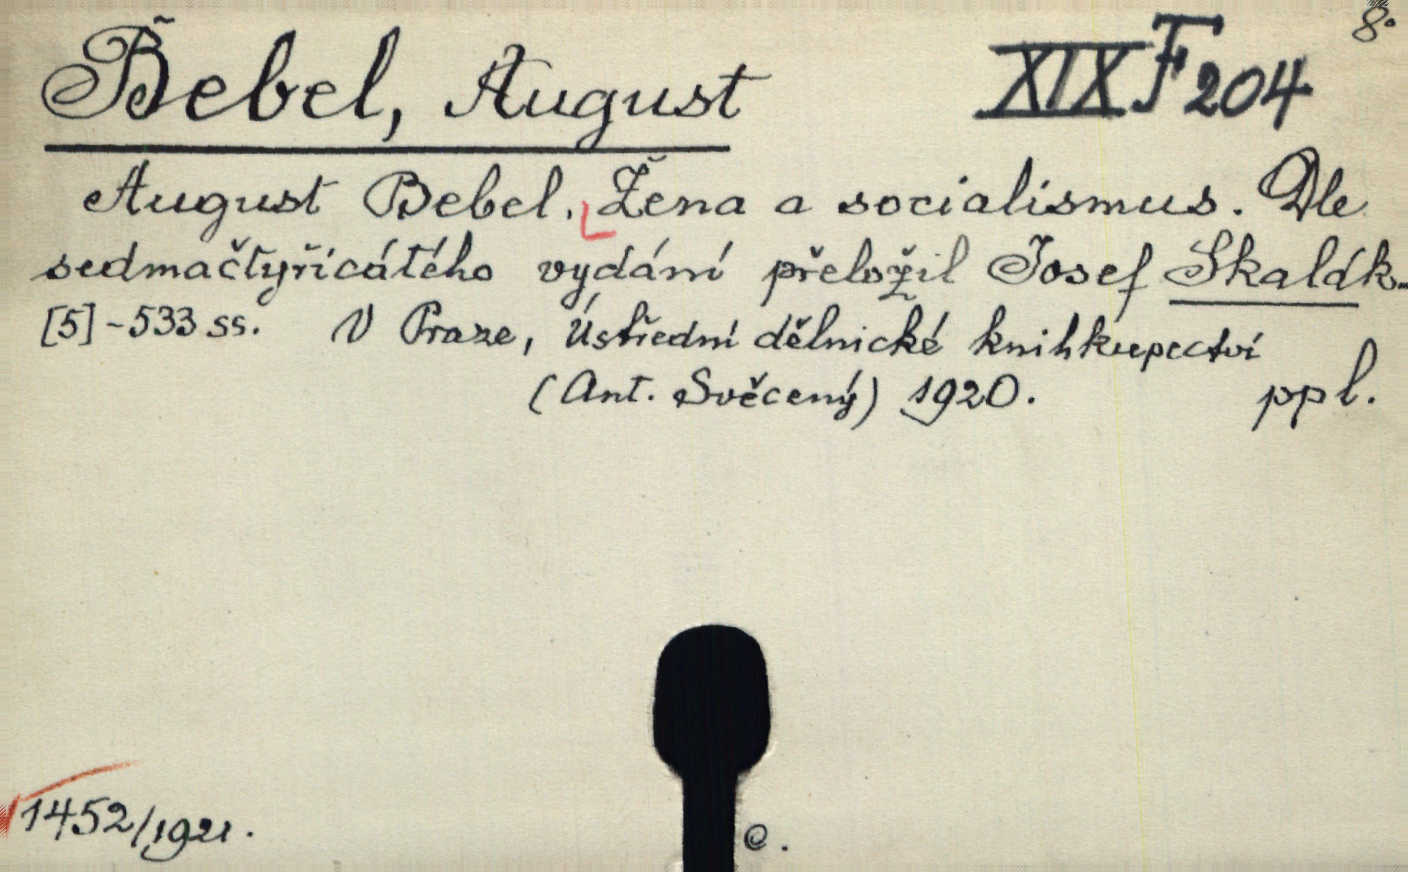 8°
Bebel, August XIX F 204
August Bebel. Žena a socialismus. Dle
sedmačtyřicátého vydání přeložil Josef Skalák.
[5]-533 ss. V Praze, Ústřední dělnické knihkupectví
(Ant. Svěcený) 1920. ppl.
1452/1921. e.